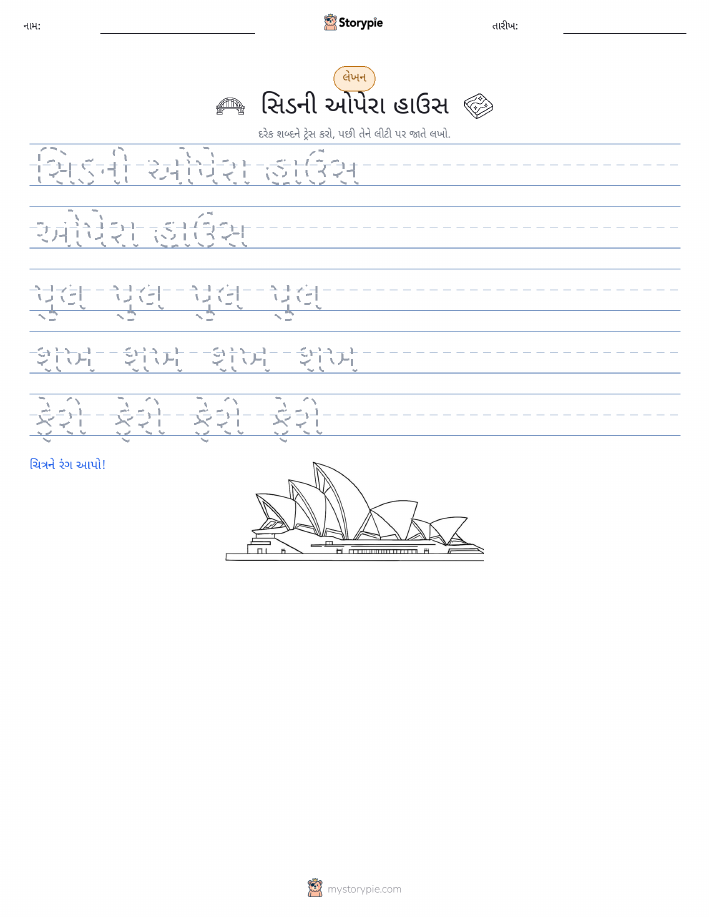 નામ: Storypie તારીખ:
લેખન
સિડની ઓપેરા હાઉસ
દરેક શબ્દને ટ્રેસ કરો, પછી તેને લીટી પર જાતે લખો.
સિડની ઓપેરા હાઉસ
ઓપેરા હાઉસ
પુલ પુલ પુલ પુલ
શખ શખ શખ શખ
ફેરી ફેરી ફેરી ફેરી
ચિત્રને રંગ આપો!
mystorypie.com